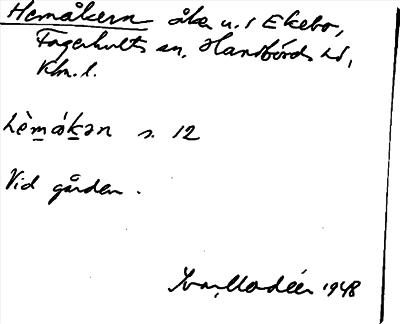 Hemåkern åker u. 1 Ekebo,
Fagerhults sn, Handbörds hd,
Klm. l.
hèmåkən s. 12
Vid gården.
Ivar Modéer 1948